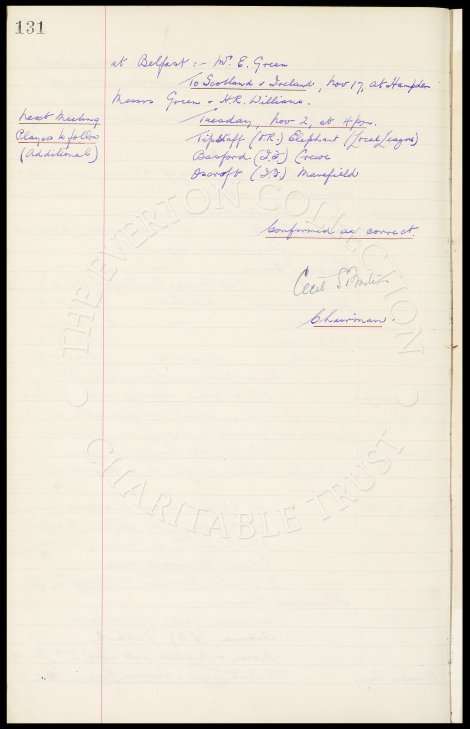 131
at Belfast :- Mr. E. Green
To Scotland v Ireland, Nov 17, at Hampden
Messrs Green & H.R. Williams.
Next Meeting
Tuesday, Nov 2, at 4pm.
Players to follow
(Additional)
Tipstaff (I.R.) Elephant (Local League)
Basford (I.F.) Crewe
Oscroft (I.F.) Mansfield
Confirmed as correct
Cecil S.
Chairman.
THE EVERTON COLLECTION
CHARITABLE TRUST